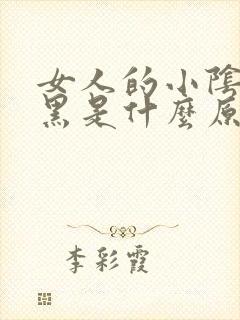 女人的小陰
黑是什麼原
李彩霞